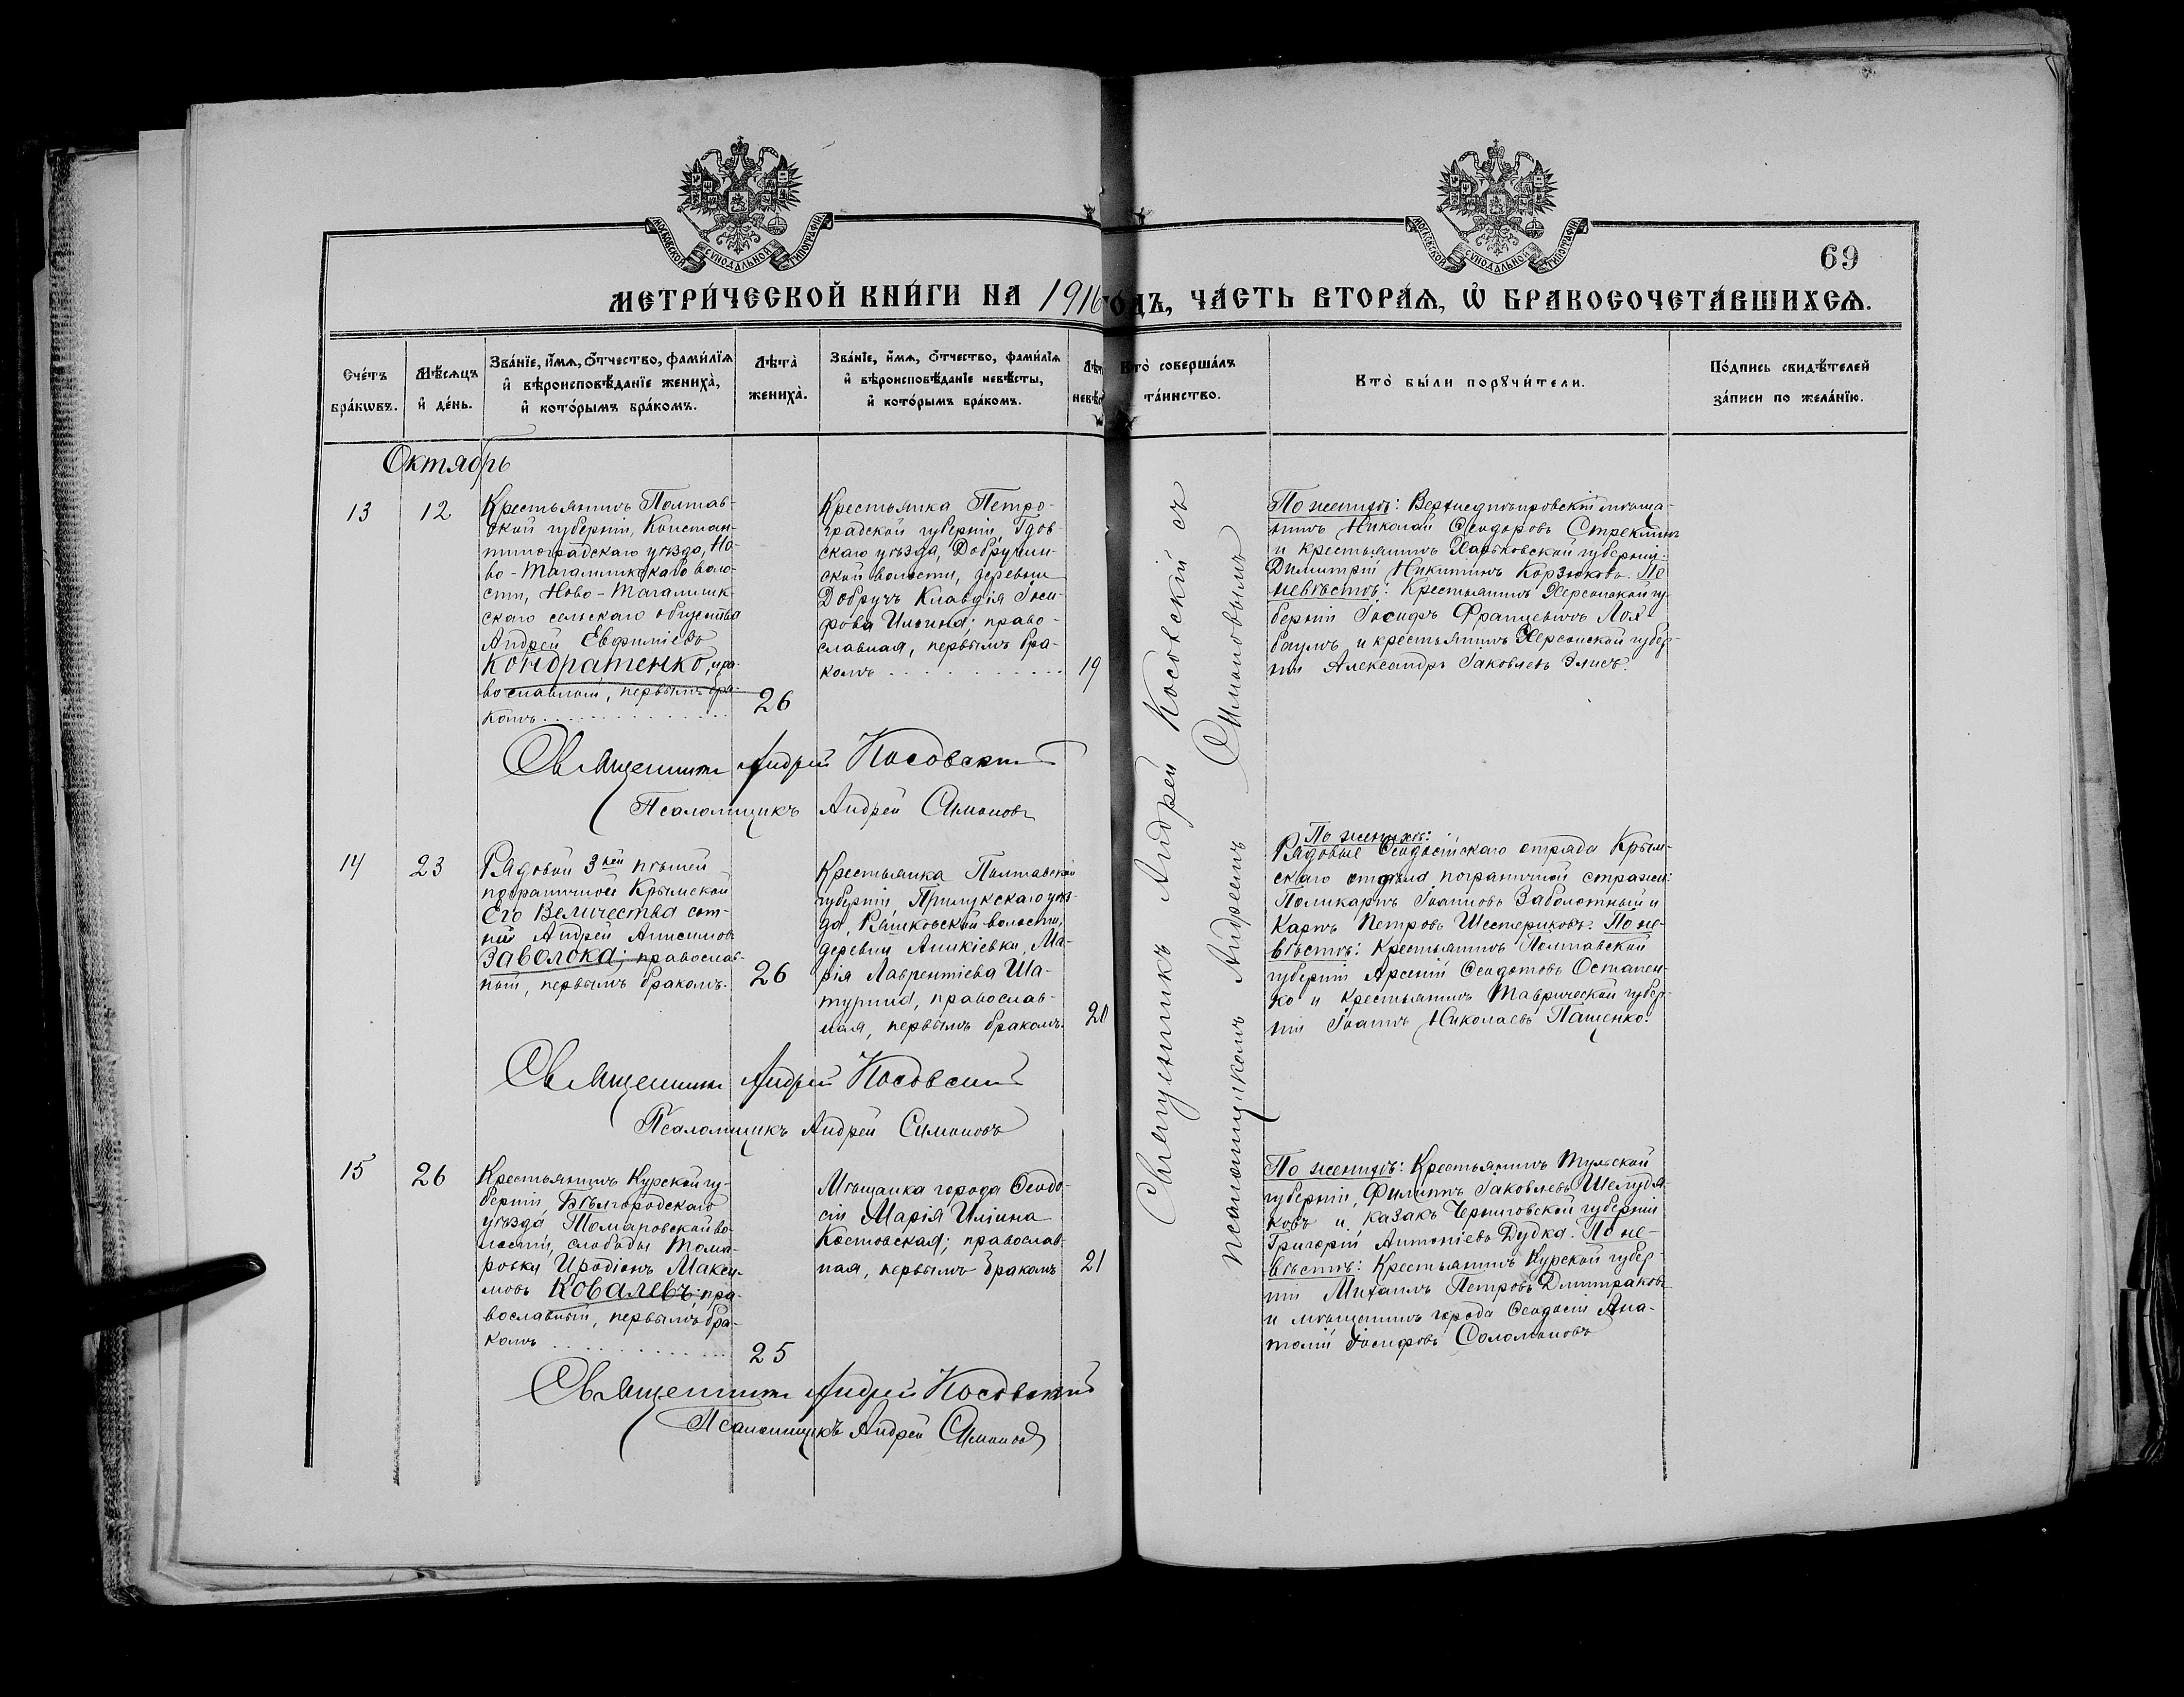 МОСКОВСКОЙ СѴНОДАЛЬНОЙ ТИПОГРАФІИ
МОСКОВСКОЙ СѴНОДАЛЬНОЙ ТИПОГРАФІИ
69
МЕТРИ́ЧЕСКОЙ КНИ́ГИ НА 1916 ГОДЪ, ЧА́СТЬ ВТОРА́Ѧ, Ѡ҆ БРАКОСОЧЕТА́ВШИХСѦ.
Сче́тъ
бра́кѡвъ.
Мѣ́сѧцъ
и҆ де́нь.
Зва́нїе, и҆́мѧ, ѻ҆́тчество, фами́лїѧ
и҆ вѣроисповѣ́данїе жениха̀,
и҆ кото́рымъ бра́комъ.
Лѣ́та
жениха̀.
Зва́нїе, и҆́мѧ, ѻ҆́тчество, фами́лїѧ
и҆ вѣроисповѣ́данїе невѣ́сты,
и҆ кото́рымъ бра́комъ.
Лѣт
невѣс
Кто̀ соверша́лъ
та́инство.
Кто̀ бы́ли порꙋчи́тели.
По́дпись свидѣ́телей
за́писи по жела́нїю.
Октябрь
13
12
Крестьянинъ Полтав-
ской губерніи, Констан-
тиноградскаго уѣзда, Но-
во-Тагамликскаго воло-
сти, Ново-Тагамлик-
скаго сельскаго общества
Андрей Евфиміевъ
Кондратенко, пра-
вославный, первымъ бра-
комъ
26
Крестьянка Петро-
градской губерніи, Гдов-
скаго уѣзда, Добручин-
ской волости, деревни
Добручъ Клавдія Іоси-
фова Ильина; право-
славная, первымъ бра-
комъ
19
По женихѣ: Верхнеднѣпровскій мѣща-
нинъ Николай Ѳеодоровъ Стрекминъ
и крестьянинъ Харьковской губерніи
Димитрій Никитинъ Корзюковъ. По
невѣстѣ: Крестьянинъ Херсонской гу-
берніи Іосифъ Францевичъ Лоя-
баумъ и крестьянинъ Херсонской губер-
ніи Александръ Іаковлевъ Элисъ.
Священникъ Андрей Косовскій
Псаломщикъ Андрей Симоновъ
Священникъ Андрей Косовскій съ
псаломщикомъ Андреемъ Симоновымъ
14
23
Рядовой 3ей пѣшей
пограничной Крымской
Его Величества сот-
ни Андрей Анисимовъ
Заволока; православ-
ный, первымъ бракомъ.
26
Крестьянка Полтавской
губерніи Прилукскаго уѣз-
да, Рашковской волости,
деревни Аникіевки, Ма-
рія Лаврентіева Ша-
турина, православ-
ная, первымъ бракомъ.
20
По женихѣ:
Рядовые Ѳеодосійскаго отряда Крым-
скаго отдѣла пограничной стражи:
Поликарпъ Іоанновъ Заболотный и
Карпъ Петровъ Шестериковъ. По не-
вѣстѣ: Крестьянинъ Полтавской
губерніи Арсеній Ѳеодотовъ Остапен-
ко и Крестьянинъ Таврической губер-
ніи Іоаннъ Николаевъ Пащенко.
Священникъ Андрей Косовскій
Псаломщикъ Андрей Симоновъ
15
26
Крестьянинъ Курской гу-
берніи, Бѣлгородскаго
уѣзда Томаровской во-
лости, слободы Тома-
ровки Иродіонъ Макси-
мовъ Ковалевъ; пра-
вославный, первымъ бра-
комъ
25
Мѣщанка города Ѳеодо-
сіи Марія Иліина
Костовская; православ-
ная, первымъ бракомъ
21
По женихѣ: Крестьянинъ Тульской
губерніи, Филиппъ Іаковлевъ Шелудя-
ковъ и казакъ Черниговской губерніи
Григорій Антоніевъ Дудка. По не-
вѣстѣ: Крестьянинъ Курской губер-
ніи Михаилъ Петровъ Дмитраковъ
и мѣщанинъ города Ѳеодосіи Ана-
толій Іосифовъ Соломоновъ
Священникъ Андрей Косовскій
Псаломщикъ Андрей Симоновъ